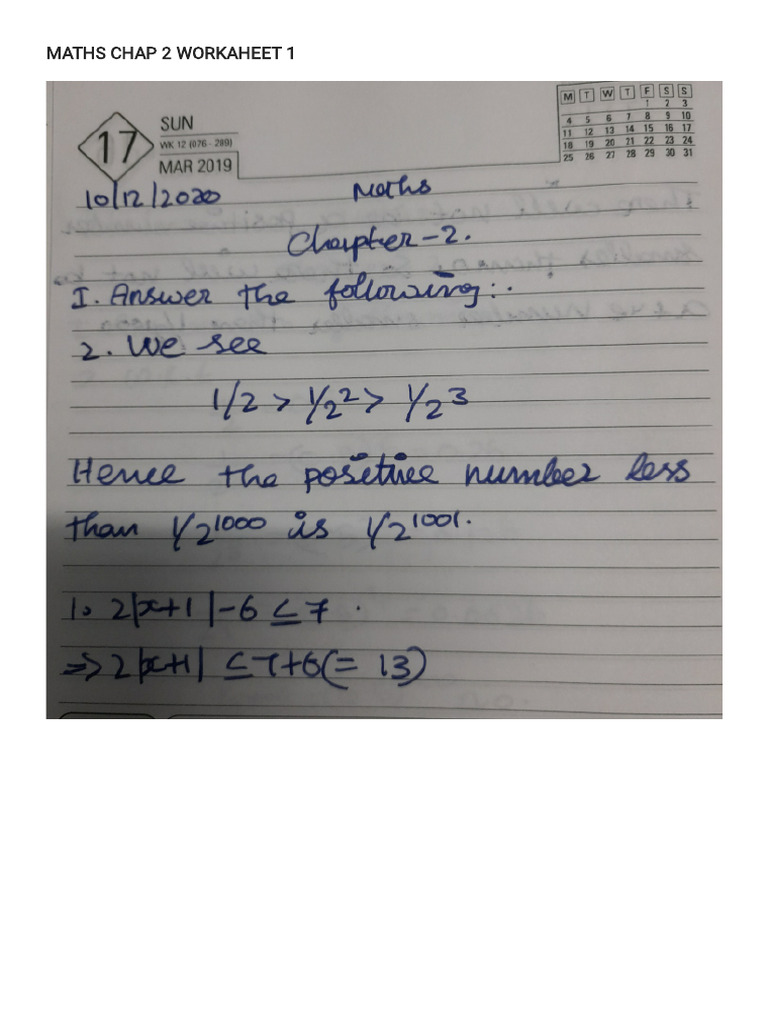 MATHS CHAP 2 WORKAHEET 1
17
SUN
WK 12 (076 - 289)
MAR 2019
M T W T F S S
1 2 3
4 5 6 7 8 9 10
11 12 13 14 15 16 17
18 19 20 21 22 23 24
25 26 27 28 29 30 31
10/12/2020 Maths
Chapter-2.
I. Answer the following:-
2. We see
1/2 > 1/2² > 1/2³
Hence the positive number less
than 1/2¹⁰⁰⁰ is 1/2¹⁰⁰¹.
1. 2|x+1|-6 ≤ 7.
⇒ 2|x+1| ≤ 7+6(= 13)